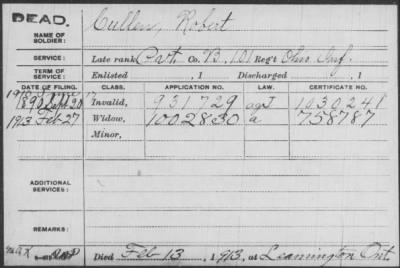 DEAD.
NAME OF SOLDIER:
Cullen, Robert
SERVICE:
Late rank Pvt. Co. B, 101 Reg't Ohio Inf.
TERM OF SERVICE:
Enlisted , 1 Discharged , 1
DATE OF FILING. CLASS. APPLICATION NO. LAW. CERTIFICATE NO.
1890 Sept 20 Invalid, 931729 J 1030241
1913 Feb 27 Widow, 1002830 a 758787
Minor,
ADDITIONAL SERVICES:
REMARKS:
Died Feb 13, 1913, at Leamington Ont.